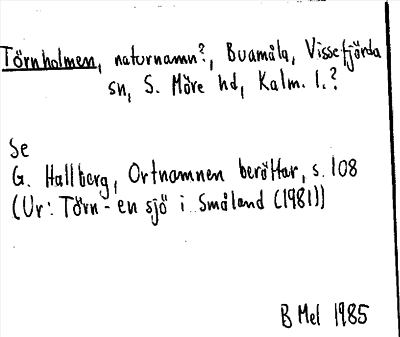 Törnholmen, naturnamn?, Buamåla, Vissefjärda
sn, S. Möre hd, Kalm. l.?
Se
G. Hallberg, Ortnamnen berättar, s. 108
(Ur: Törn - en sjö i Småland (1981))
B Mel 1985